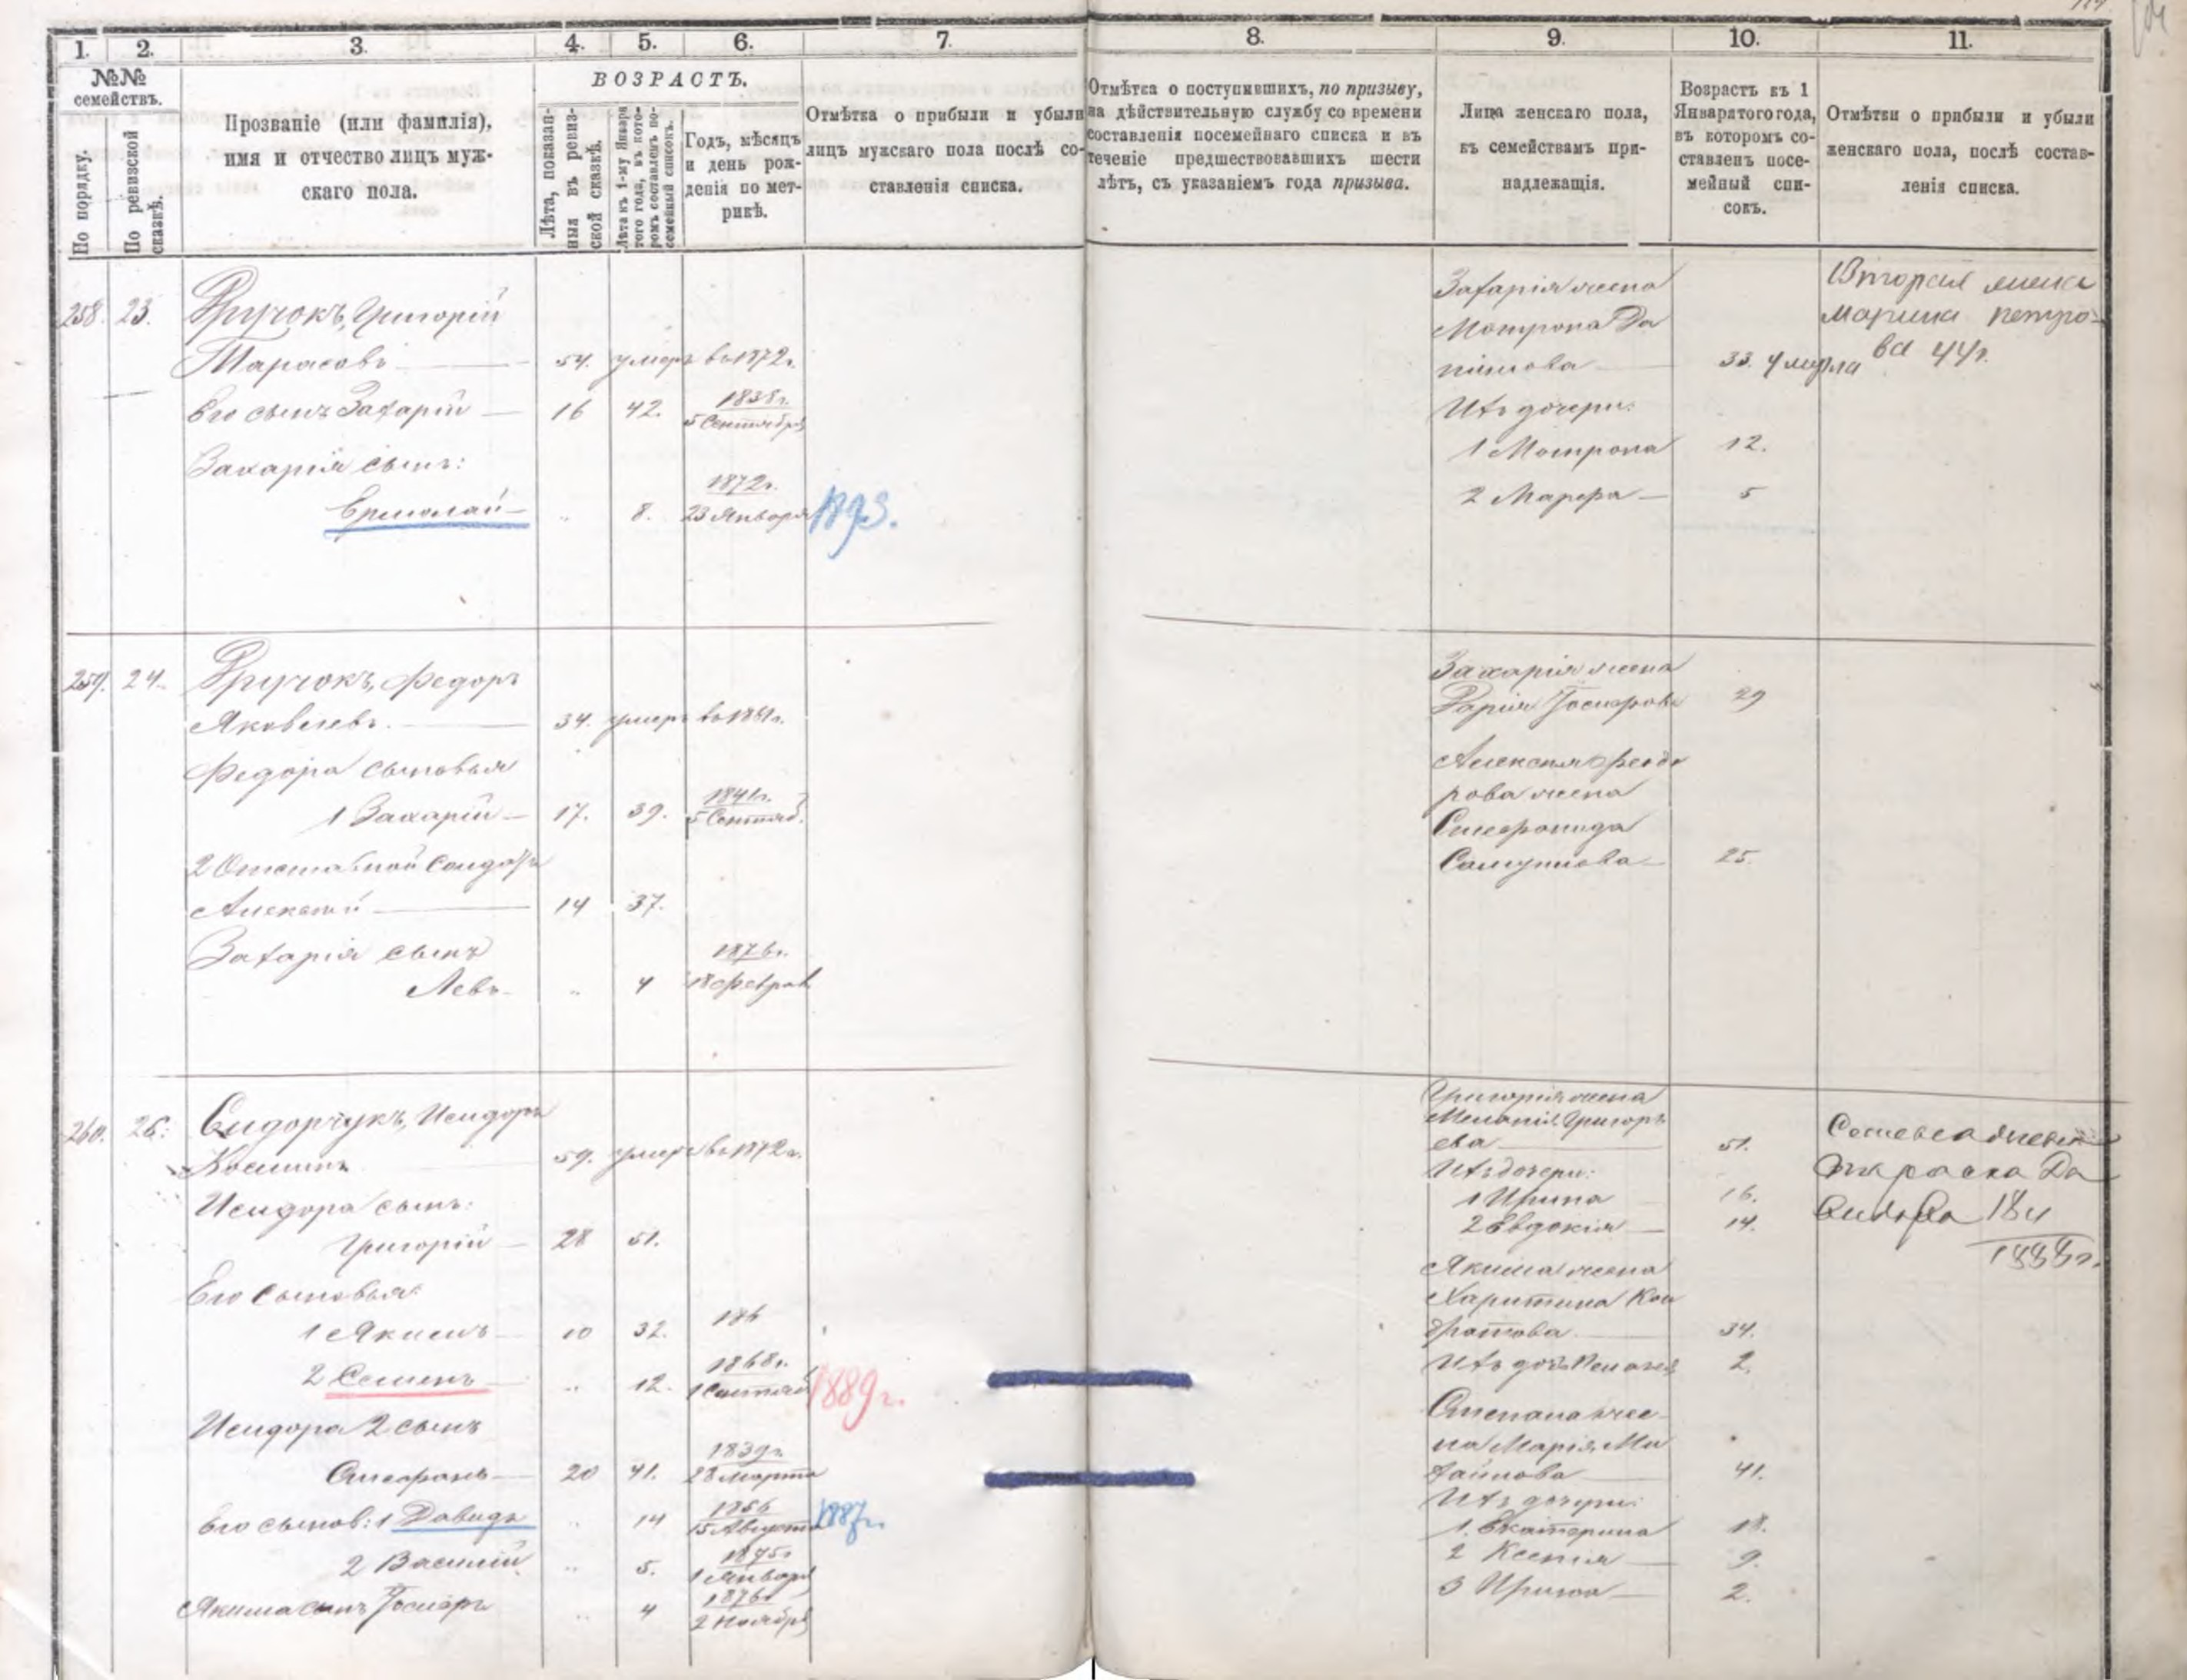 1. 2. 3. 4. 5. 6. 7.
№№ семействъ.
По порядку.
По ревизской сказкѣ.
Прозваніе (или фамилія),
имя и отчество лицъ муж-
скаго пола.
ВОЗРАСТЪ.
Лѣта, показан-
ныя въ ревиз-
ской сказкѣ.
Лѣта къ 1-му Января
того года, въ кото-
ромъ составленъ по-
семейный списокъ.
Годъ, мѣсяцъ
и день рож-
денія по мет-
рикѣ.
Отмѣтка о прибыли и убыли
лицъ мужскаго пола послѣ со-
ставленія списка.
258. 23. Гручокъ, Григорій
Тарасовъ 54. умеръ въ 1872г.
Его сынъ Захарій 16 42. 1838г.
5 Сентября
Захарія сынъ: 1872г.
Ермолай „ 8. 23 Января 1893.
259. 24. Гручокъ, Федоръ
Яковлевъ. 34. умеръ въ 1861г.
Федора сыновья
1 Захарій 17. 39. 1841г.
5 Сентяб.
2 Отставной Солдатъ
Алексѣй 14 37.
Захарія сынъ 1876г.
Левъ „ 4 18 Феврал
260. 26. Сидорчукъ, Исидоръ
Косминъ 59. умеръ въ 1872г.
Исидора сынъ:
Григорій 28 51.
Его сыновья:
1 Якимъ 10 32. 186
2 Семенъ „ 12. 1868г.
1 Сентяб 1889г.
Исидора 2 сынъ 1839г.
Стефанъ 20 41. 28 Марта
Его сынов: 1 Давидъ „ 14 1866
15 Августа 1887г.
2 Василій „ 5. 1875г
1 Января
Якима сынъ Іосифъ „ 4 1876г
2 Ноября
8. 9. 10. 11.
Отмѣтка о поступившихъ, по призыву,
на дѣйствительную службу со времени
составленія посемейнаго списка и въ
теченіе предшествовавшихъ шести
лѣтъ, съ указаніемъ года призыва.
Лица женскаго пола,
къ семействамъ при-
надлежащія.
Возрастъ къ 1
Января того года,
въ которомъ со-
ставленъ посе-
мейный спи-
сокъ.
Отмѣтки о прибыли и убыли
женскаго пола, послѣ состав-
ленія списка.
Захарія жена Вторая жена
Мотрона Да Марина Петро-
нилова 33. умерла ва 44г.
Ихъ дочери:
1 Мотрона 12.
2 Марфа 5
Захарія жена
Дарія Іосифова 29
Алексѣя Федо
рова жена
Степанида
Самуилова 25.
Григорія жена
Меланія Григорь
ева 51.
Ихъ дочери:
1 Ирина 16.
2 Евдокія 14.
18 4
1888г.
Якима жена
Харитина Кон
дратова 34.
Ихъ дочь Пелагея 2.
Стефана же-
на Марія Ми
хайлова 41.
Ихъ дочери:
1. Екатерина 18.
2 Ксенія 9.
3 Ирина 2.